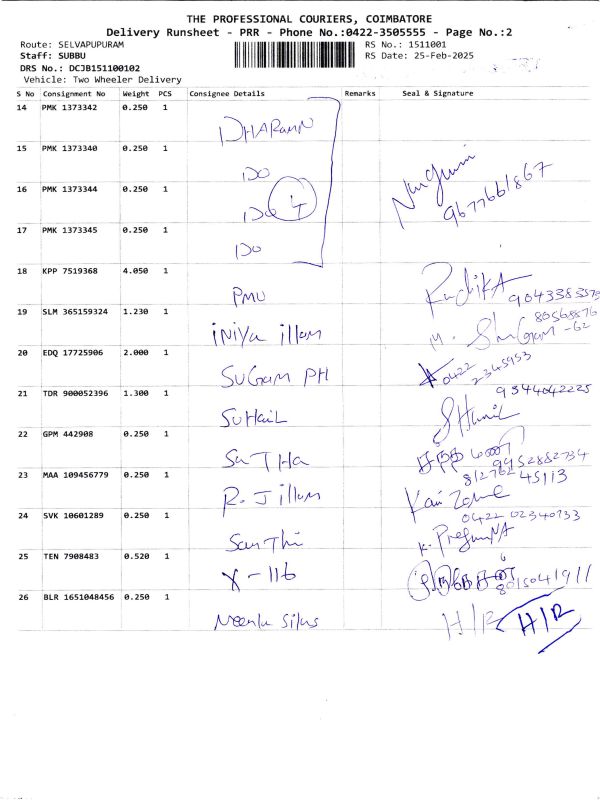 THE PROFESSIONAL COURIERS, COIMBATORE
Delivery Runsheet - PRR - Phone No.:0422-3505555 - Page No.:2
Route: SELVAPUPURAM RS No.: 1511001
Staff: SUBBU RS Date: 25-Feb-2025
DRS No.: DCJB151100102
Vehicle: Two Wheeler Delivery
S No Consignment No Weight PCS Consignee Details Remarks Seal & Signature
14 PMK 1373342 0.250 1
15 PMK 1373340 0.250 1 DO
16 PMK 1373344 0.250 1 DO 4 9677661867
17 PMK 1373345 0.250 1 DO
18 KPP 7519368 4.050 1 PMU RadikA
19 SLM 365159324 1.230 1 iNiya illam M.
20 EDQ 17725906 2.000 1 SUGam PH 0422 2345953
21 TDR 900052396 1.300 1 SUHaiL 9344042225
22 GPM 442908 0.250 1 SaTHa 9952852734
23 MAA 109456779 0.250 1 R.J illam 45113
24 SVK 10601289 0.250 1 SanThi
25 TEN 7908483 0.520 1 X-116 8015041911
26 BLR 1651048456 0.250 1 H/R H/R